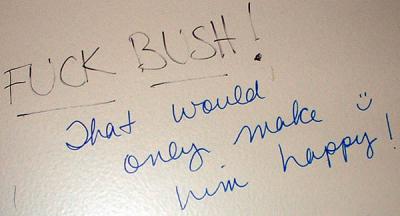 FUCK BUSH!
That would
only make
him happy!